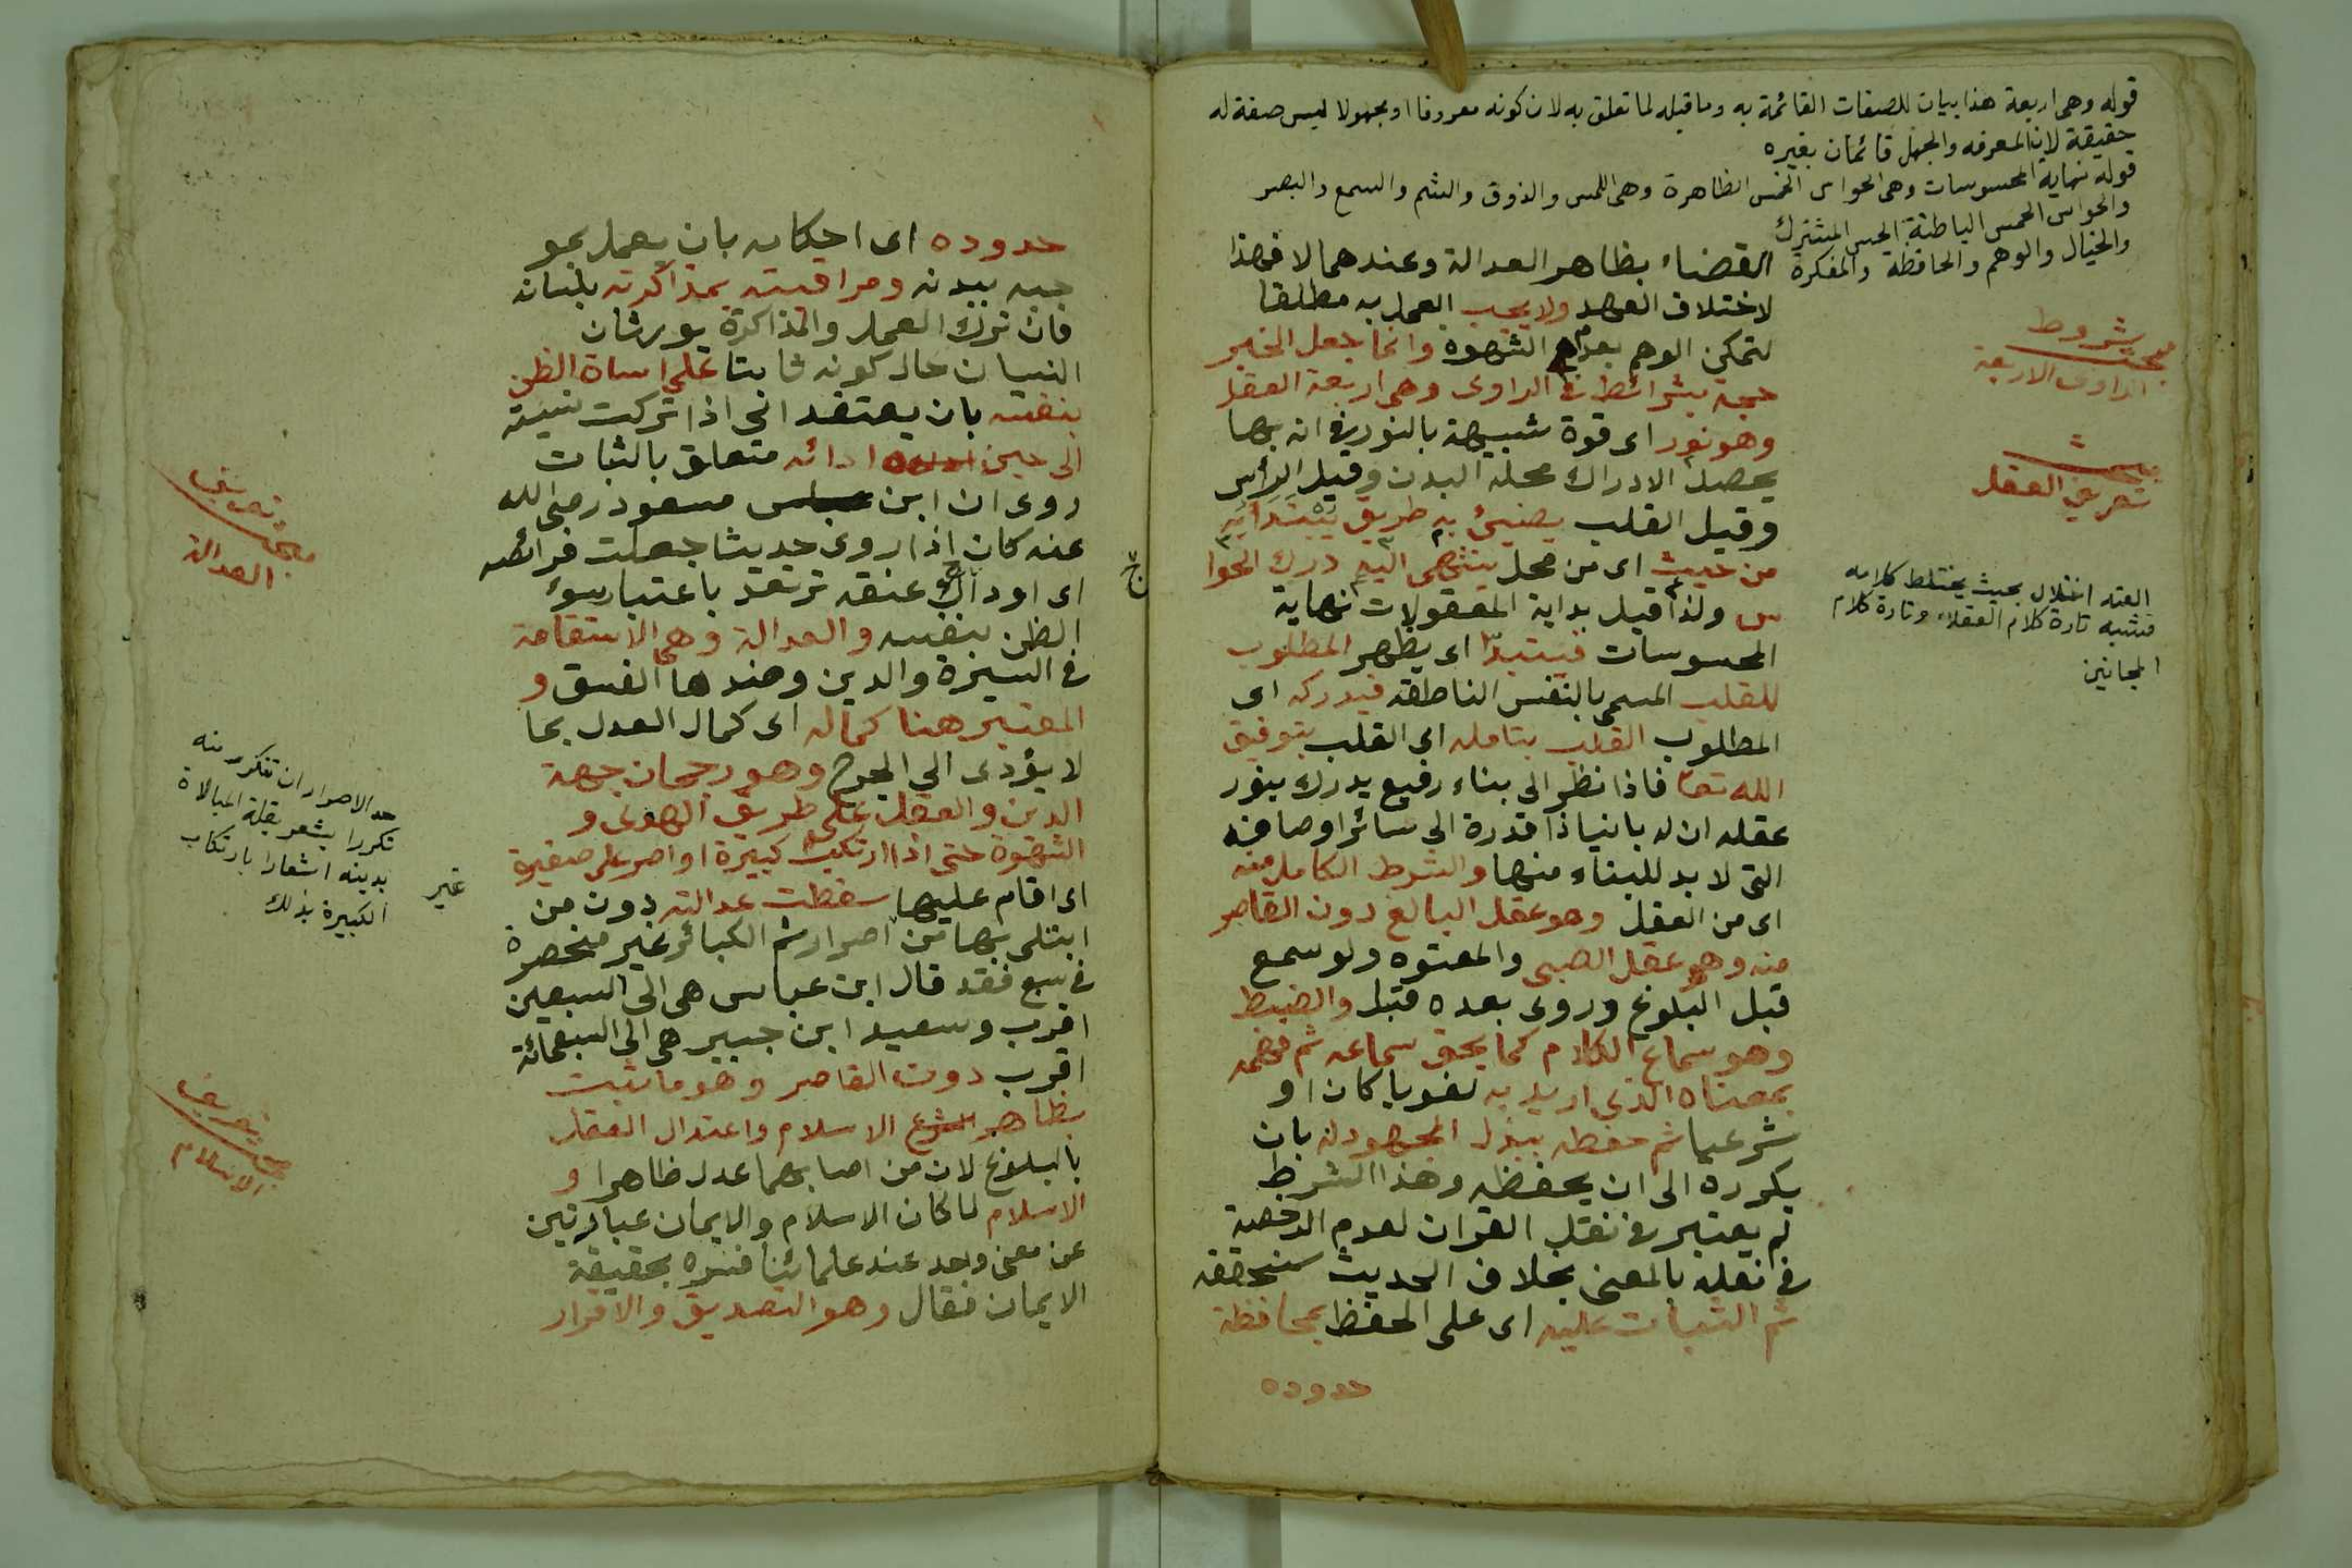 قوله وهى اربعة هذا بيان للصفات القائمة به وما قبله لما تعلق به لان كونه معروفا او مجهولا ليس صفة له
حقيقة لان المعرفه والجهل قائمان بغيره
قوله نهاية المحسوسات وهى الحواس الخمس الظاهرة وهى اللمس والذوق والشم والسمع والبصر
والحواس الخمس الباطنة الحس المشترك
والخيال والوهم والحافظة والمفكرة
القضاء بظاهر العدالة وعندهما لا فهذا
لاختلاف العهد ولا يجب العمل به مطلقا
لتمكن الوهم بعدم الشهوة وانما جعل الخبر
حجة بشرائط فى الراوى وهى اربعة العقل
وهو نور اى قوة شبيهة بالنور فى انه بها
يحصل الادراك محله البدن وقيل الرأس
وقيل القلب يضيئ به طريق يبتدأ به
من حيث اى من محل ينتهى اليه درك الحوا
س ولذا قيل بداية المعقولات نهاية
المحسوسات فيتبدّا اى يظهر المطلوب
للقلب المسمى بالنفس الناطقه فيدركه اى
المطلوب القلب بتامله اى القلب بتوفيق
الله تعا فاذا نظر الى بناء رفيع يدرك بنور
عقله ان له بانيا ذا قدرة الى سائر اوصافه
التى لا بد للبناء منها والشرط الكامل منه
اى من العقل وهو عقل البالغ دون القاصر
منه وهو عقل الصبى والمعتوه ولو سمع
قبل البلوغ وروى بعده قبل والضبط
وهو سماع الكلام كما يحق سماعه ثم فهمه
بمعناه الذى اريد به لغويا كان او
شرعيا ثم حفظه ببذل المجهود له بان
يكرره الى ان يحفظه وهذا الشرط
لم يعتبر فى نقل القران لعدم الرخصة
فى نقله بالمعنى بخلاف الحديث سنحققه
ثم الثبات عليه اى على الحفظ بمحافظة
حدوده
مبحث شروط
الراوى الاربعة
مبحث
تعريف العقل
العته اختلال بحيث يختلط كلامه
فيشبه تارة كلام العقلاء وتارة كلام
المجانين
حدوده اى احكامه بان يعمل بمو
جبه ببدنه ومراقبته بمذاكرته بلسانه
فان ترك العمل والمذاكرة يورثان
النسيان حال كونه ثابتا على اساة الظن
بنفسه بان يعتقد انى اذا تركت نسيته
الى حين ادائه متعلق بالثبات
روى ان ابن عباس مسعود رضى الله
عنه كان اذا روى حديثا جعلت فرائصه
اى اوداج عنقه ترتعد باعتبار سوء
الظن بنفسه والعدالة وهى الاستقامة
فى السيرة والدين وضدها الفسق و
المعتبر هنا كماله اى كمال العدل بما
لا يؤدى الى الحرج وهو رجحان جهة
الدين والعقل على طريق الهوى و
الشهوة حتى اذا ارتكب كبيرة او اصر على صغيرة
اى اقام عليها سقطت عدالته دون من
ابتلى بها من غير اصرار ثم الكبائر غير منحصرة
فى سبع فقد قال ابن عباس هى الى السبعين
اقرب وسعيد ابن جبير هى الى السبعمائة
اقرب دون القاصر وهو ما يثبت
بظاهر الاسلام واعتدال العقل
بالبلوغ لان من اصابهما عدل ظاهرا و
الاسلام لما كان الاسلام والايمان عبارتين
عن معنى واحد عند علمائنا فسره بحقيقة
الايمان فقال وهو التصديق والاقرار
مبحث تعريف
العدالة
حد الاصرار ان تتكرر منه
تكررا يشعر بقلة المبالاة
بدينه اشعارا بارتكاب
الكبيرة بذلك
مبحث تعريف
الاسلام